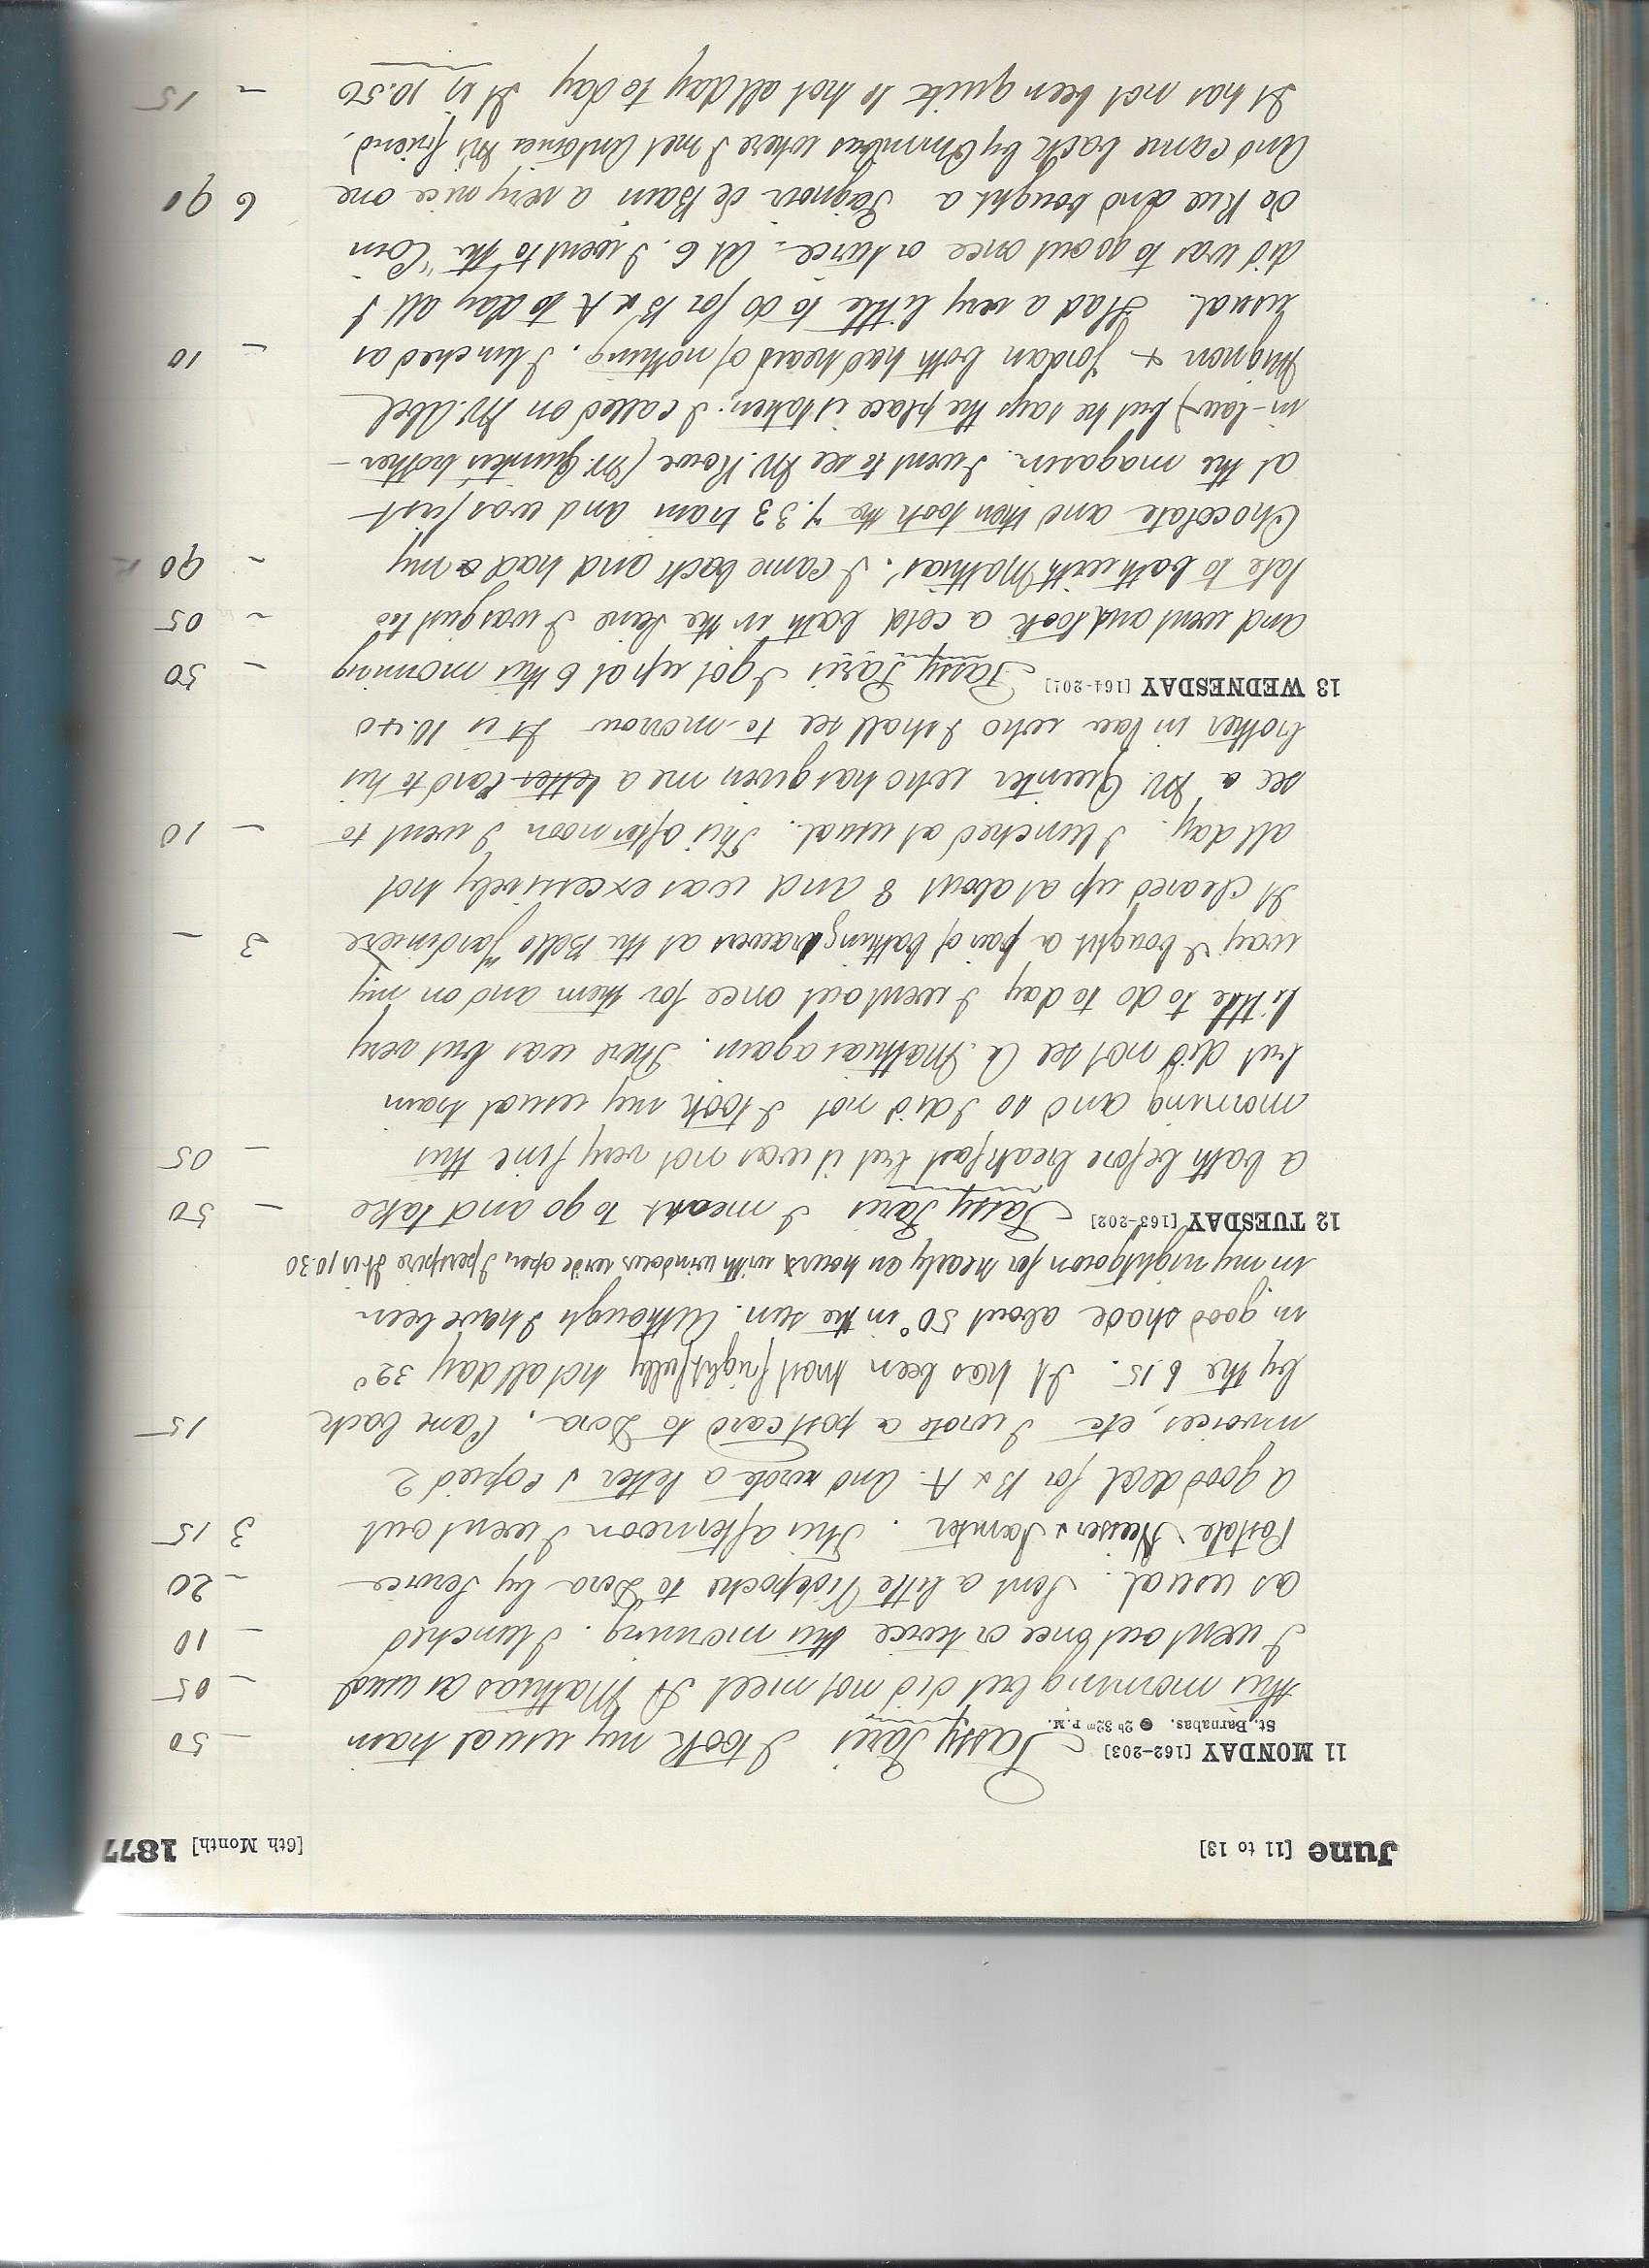 June [11 to 13] [6th Month] 1877
11 MONDAY [162-203] Passy Paris I took my usual train — 50
St. Barnabas. ● 2h 32m P.M.
this morning but did not meet A Mathias as usual - 05
I went out once or twice this morning. I lunched - 10
as usual. Sent a little to Dora by Service - 20
Postale. This afternoon I went out 3 15
a good deal for B & A. and wrote a letter & copied 2
invoices, etc I wrote a postcard to Dora. Came back 15
by the 6.15. It has been most frightfully hot all day 39°
in good shade about 50° in the sun. Although I have been
in my nightgown for nearly an hour with windows wide open, I perspire It is 10.30
12 TUESDAY [163-202] Passy Paris I meant to go and take — 50
a bath before breakfast but it was not very fine this — 05
morning and so I did not I took my usual train
but did not see A. Mathias again. There was but very
little to do today I went out once for them and on my
way I bought a pair of bathing drawers at the Belle Jardiniere 3 —
It cleared up at about 8 and was excessively hot
all day. I lunched as usual. This afternoon I went to — 10
see a Mr. Gunter who has given me a letter card to his
brother in law who I shall see to-morrow It is 10.40
13 WEDNESDAY [164-201] Passy Paris I got up at 6 this morning - 50
and went and took a cold bath in the Seine I was just too ~ 05
late to bath with Mathias. I came back and had a my ~ 90
Chocolate and then took the 7.33 train and was just
at the magasin. I went to see Mr. Rowe (Mr. Gunter's brother-
in-law) but he says the place is taken. I called on Mr. Abel
Pugnon & Jordan both had heard of nothing. I lunched as - 10
usual. Had a very little to do for B & A to day all I
did was to go out once or twice. At 6. I went to the "Coin
de Rue and bought a Peignoir de Bain a very nice one 6 90
And came back by Omnibus where I met Antoinea M's friend.
It has not been quite so hot all day to day It is 10.50 ~ 15